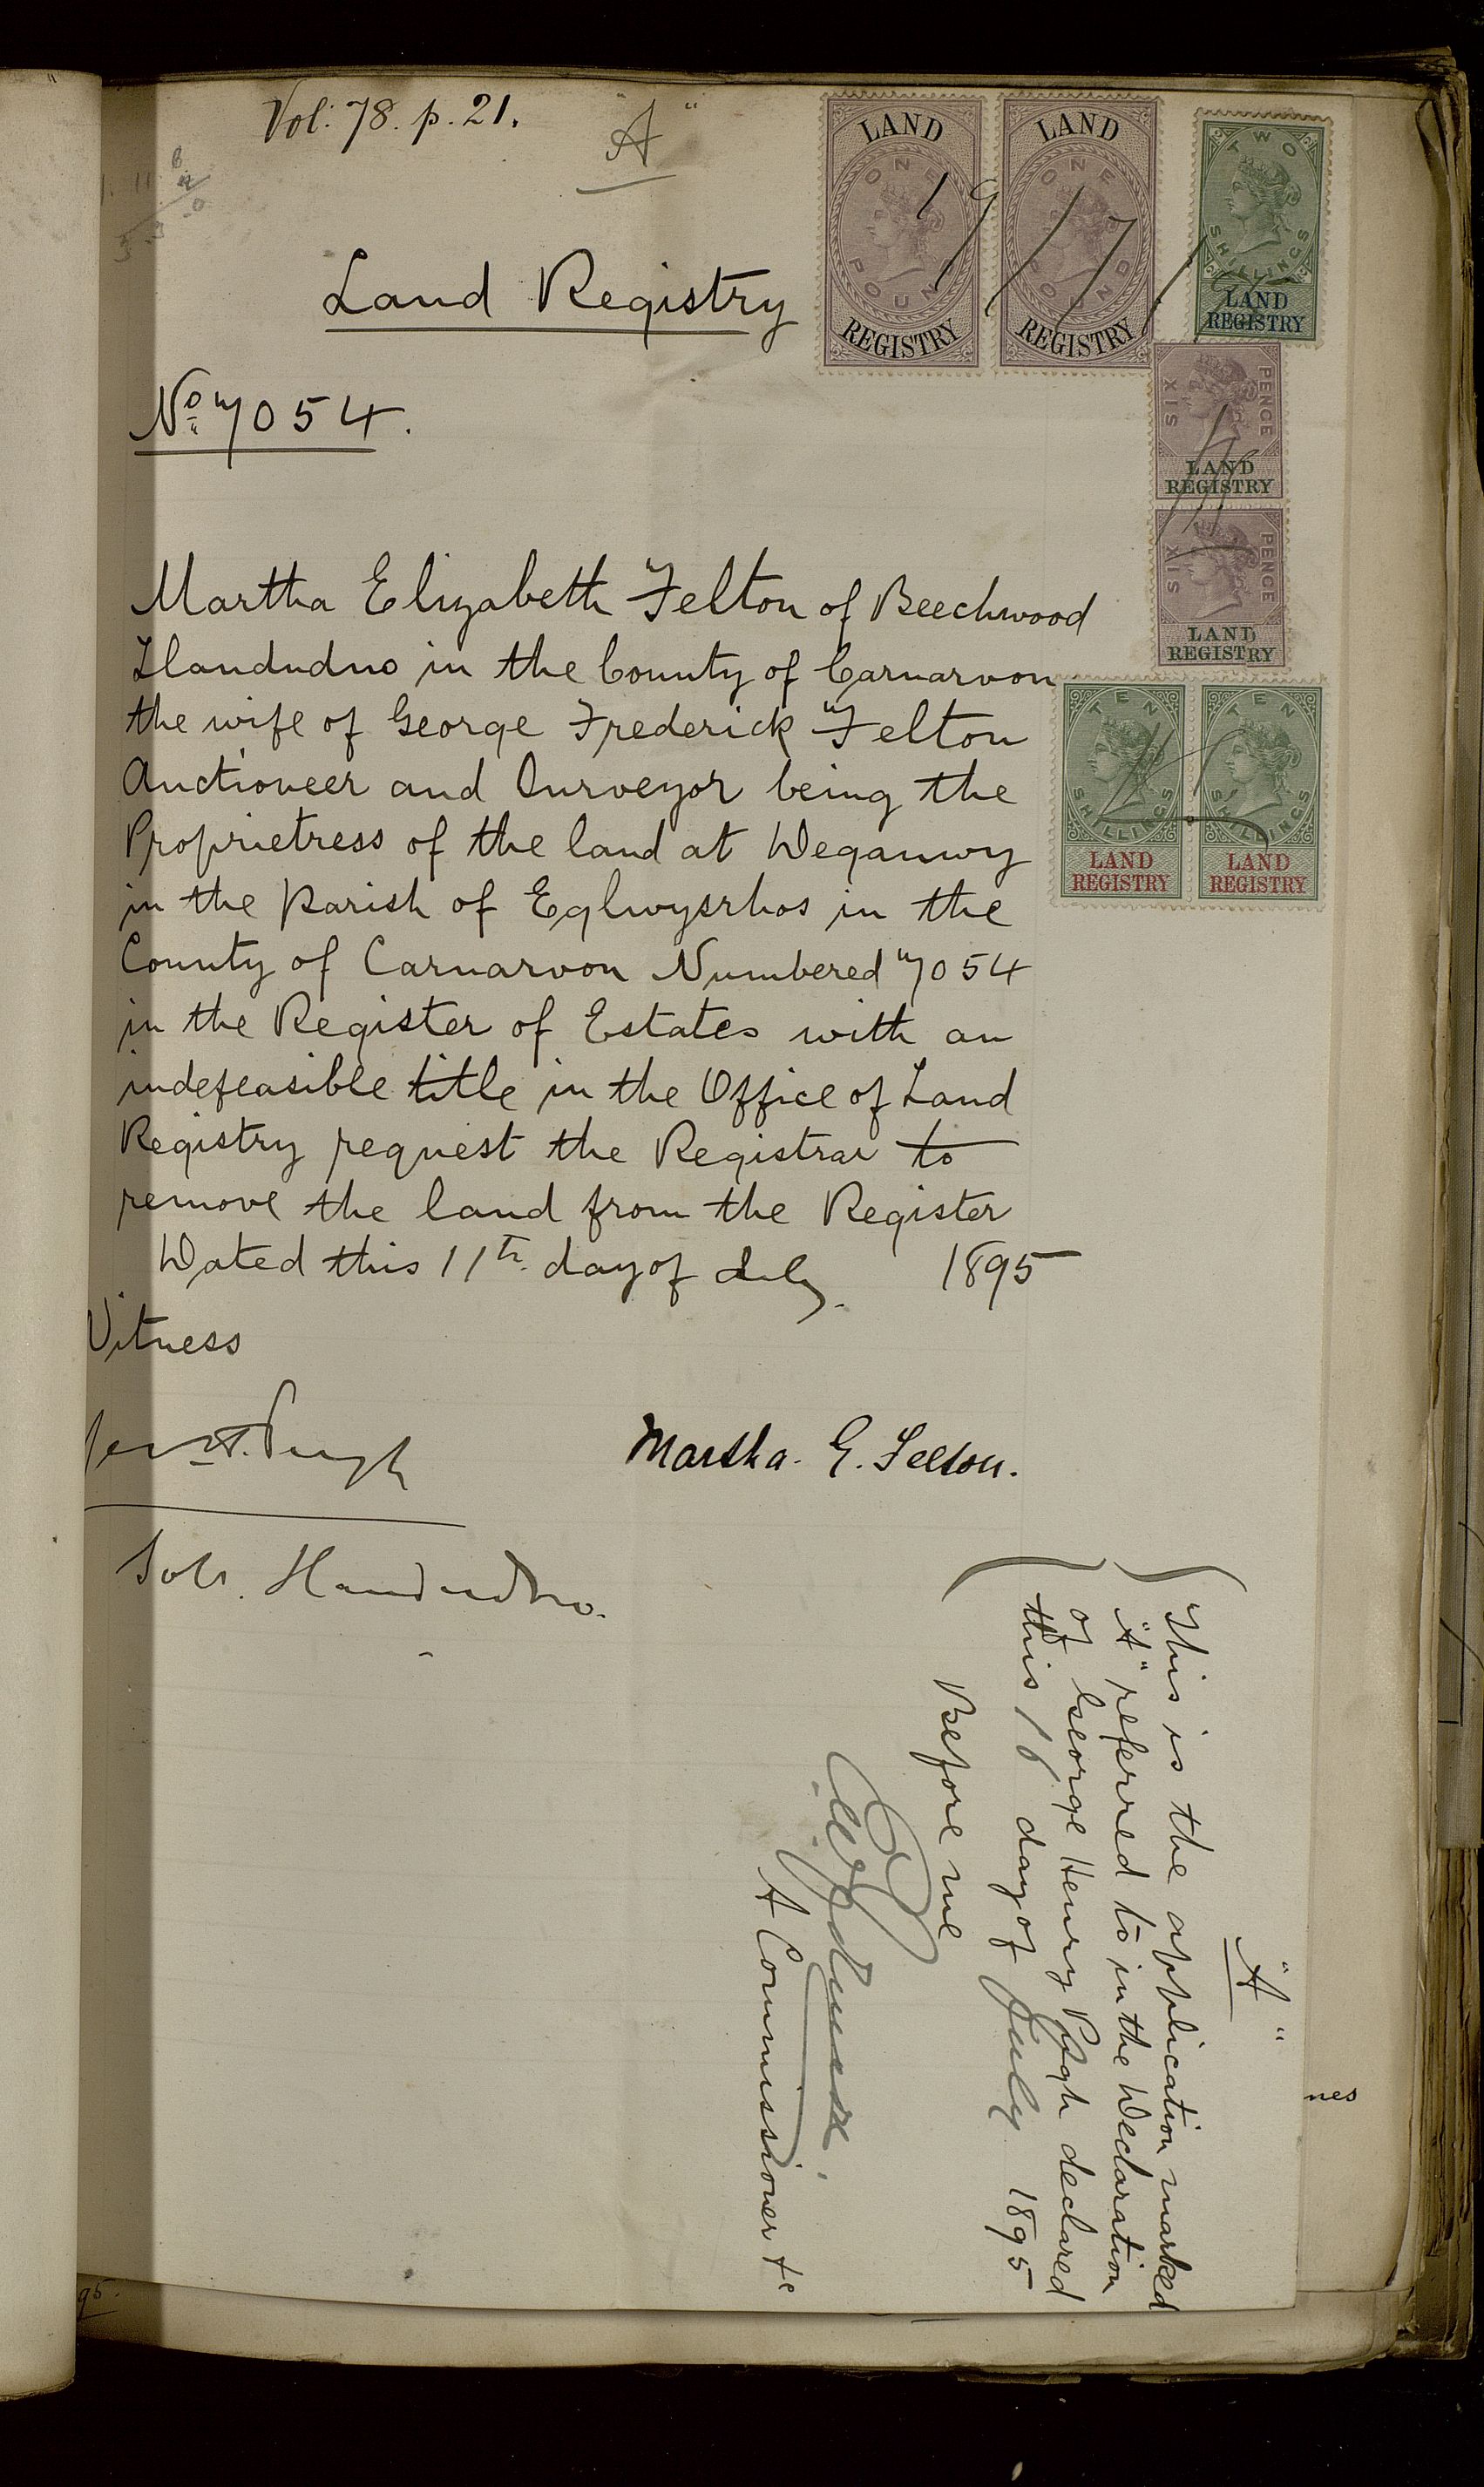 Vol: 78. p. 21.
"A"
Land Registry
No 7054.
LAND
ONE
POUND
REGISTRY
LAND
ONE
POUND
REGISTRY
TWO
SHILLINGS
LAND
REGISTRY
SIX PENCE
LAND
REGISTRY
SIX PENCE
LAND
REGISTRY
TEN
SHILLINGS
LAND
REGISTRY
TEN
SHILLINGS
LAND
REGISTRY
Martha Elizabeth Felton of Beechwood
Llandudno in the County of Carnarvon
the wife of George Frederick Felton
Auctioneer and Surveyor being the
Proprietress of the land at Deganwy
in the Parish of Eglwysrhos in the
County of Carnarvon Numbered 7054
in the Register of Estates with an
indefeasible title in the Office of Land
Registry request the Registrar to
remove the land from the Register
Dated this 11th day of July 1895
Witness
Pugh
Martha. E. Felton.
Solr. Llandudno.
"A"
This is the application marked
"A" referred to in the Declaration
of George Henry Pugh declared
this 16 day of July 1895
Before me
A Commissioner &c
nes
95.